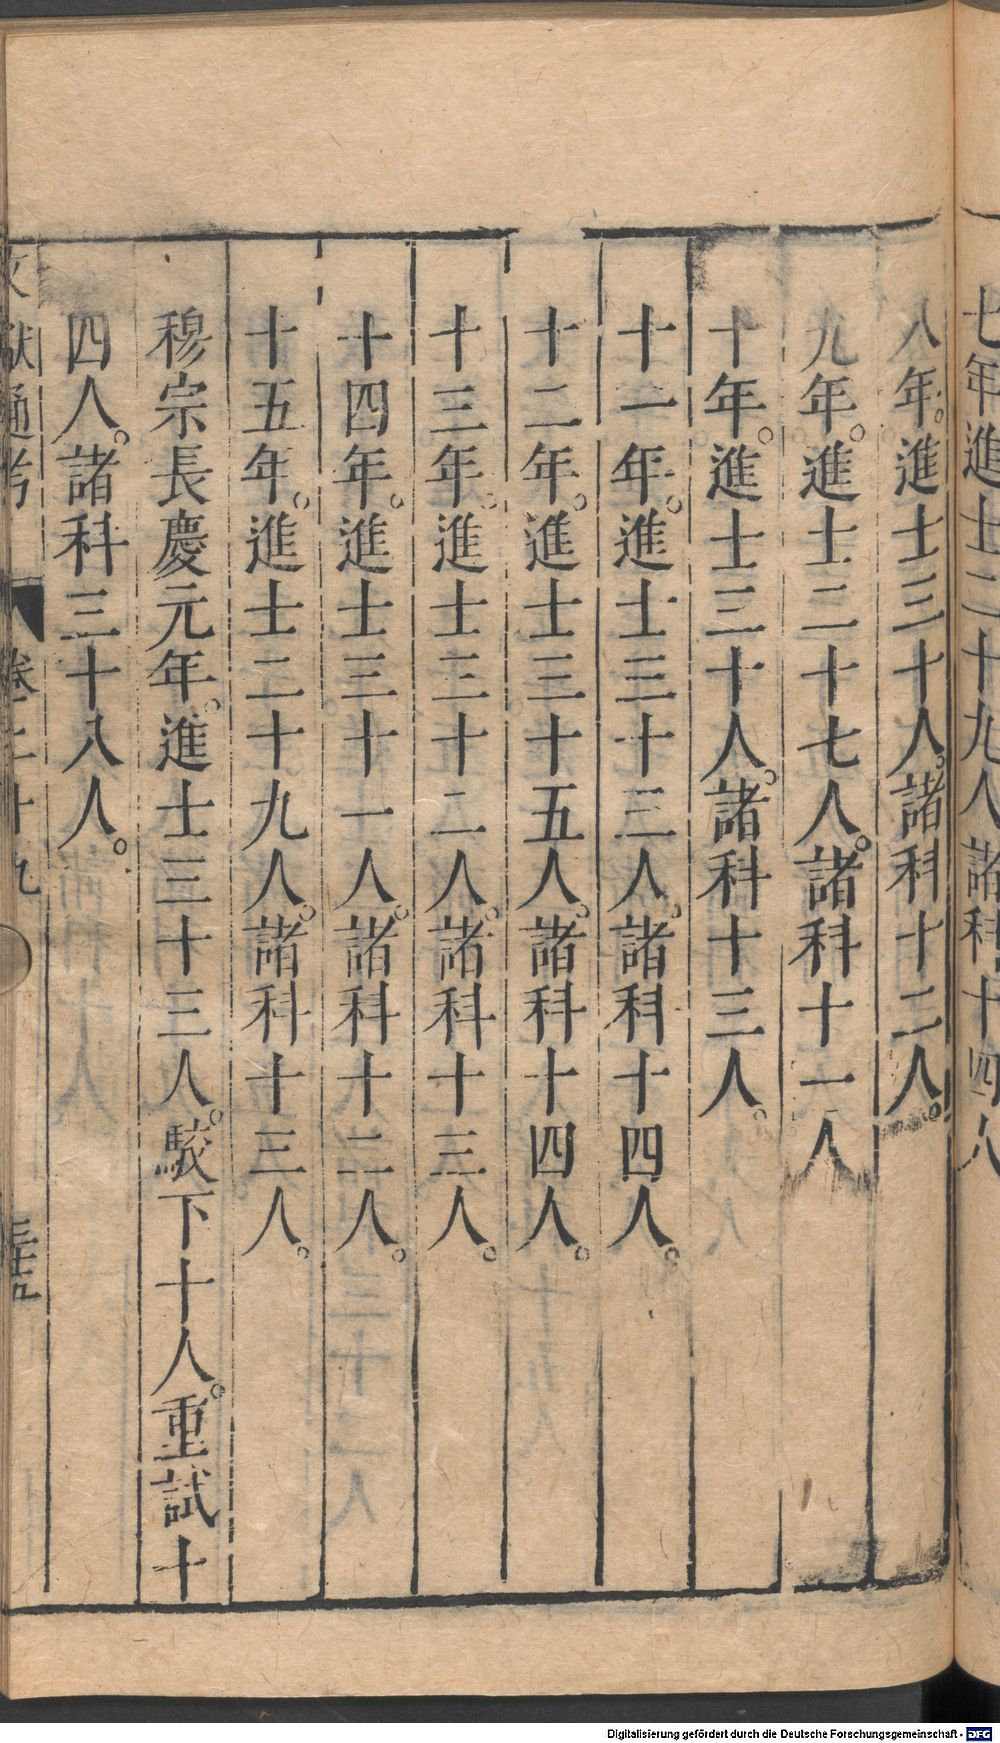 七年進士二十九人諸科十四人
八年。進士三十人。諸科十二人。
九年。進士二十七人。諸科十一人
十年。進士三十人。諸科十三人。
十一年。進士三十三人。諸科十四人。
十二年。進士三十五人。諸科十四人。
十三年。進士三十二人。諸科十三人。
十四年。進士三十一人。諸科十二人。
十五年。進士二十九人。諸科十三人。
穆宗長慶元年。進士三十三人。駮下十人。重試十
四人。諸科三十八人。
文獻通考 卷二十九
Digitalisierung gefördert durch die Deutsche Forschungsgemeinschaft - DFG